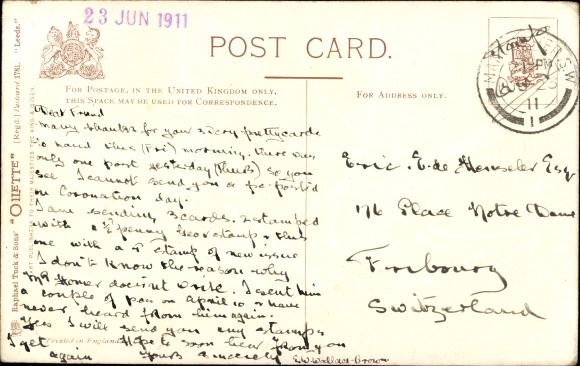 23 JUN 1911
POST CARD.
FOR POSTAGE, IN THE UNITED KINGDOM ONLY,
THIS SPACE MAY BE USED FOR CORRESPONDENCE.
FOR ADDRESS ONLY.
Dear Friend
many thanks for your 3 very pretty cards
to hand this (Fri) morning. there was
only one post yesterday (Thurs) so you
see I cannot send you a p.c. posted
on Coronation day.
I am sending 3 cards. 2 stamped
with stamps & this
one with a stamp of new issue
I don't know the reason why
Mr doesn't write. I sent him
a couple of pcs on April 10 & have
never heard from him again.
Yes I will send you any stamps
I get Hope to soon hear from you
again Yours sincerely E.W. Wallace-Brown
Eric. E. de Henseler Esq
176 Place Notre Dame
Fribourg
Switzerland
Raphael Tuck & Sons' "OILETTE" [Regd.] Postcard 1781. "Leeds."
ART PUBLISHERS TO THEIR MAJESTIES THE KING & QUEEN.
Printed in England
11